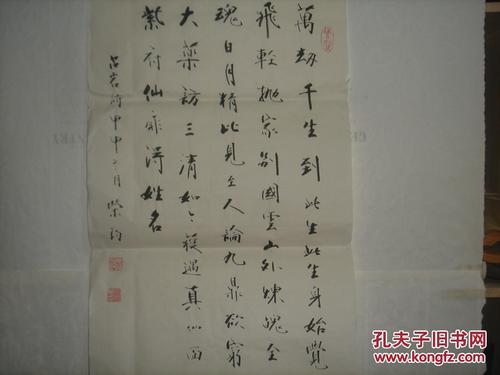 萬劫千生到此生此生身始覺
飛輕拋家別國雲山外煉魄全
魂日月精比見至人論九鼎欲窮
大藥訪三清如今獲遇真仙面
紫府仙扉得姓名
呂岩詩甲申六月榮
孔夫子旧书网
www.kongfz.com